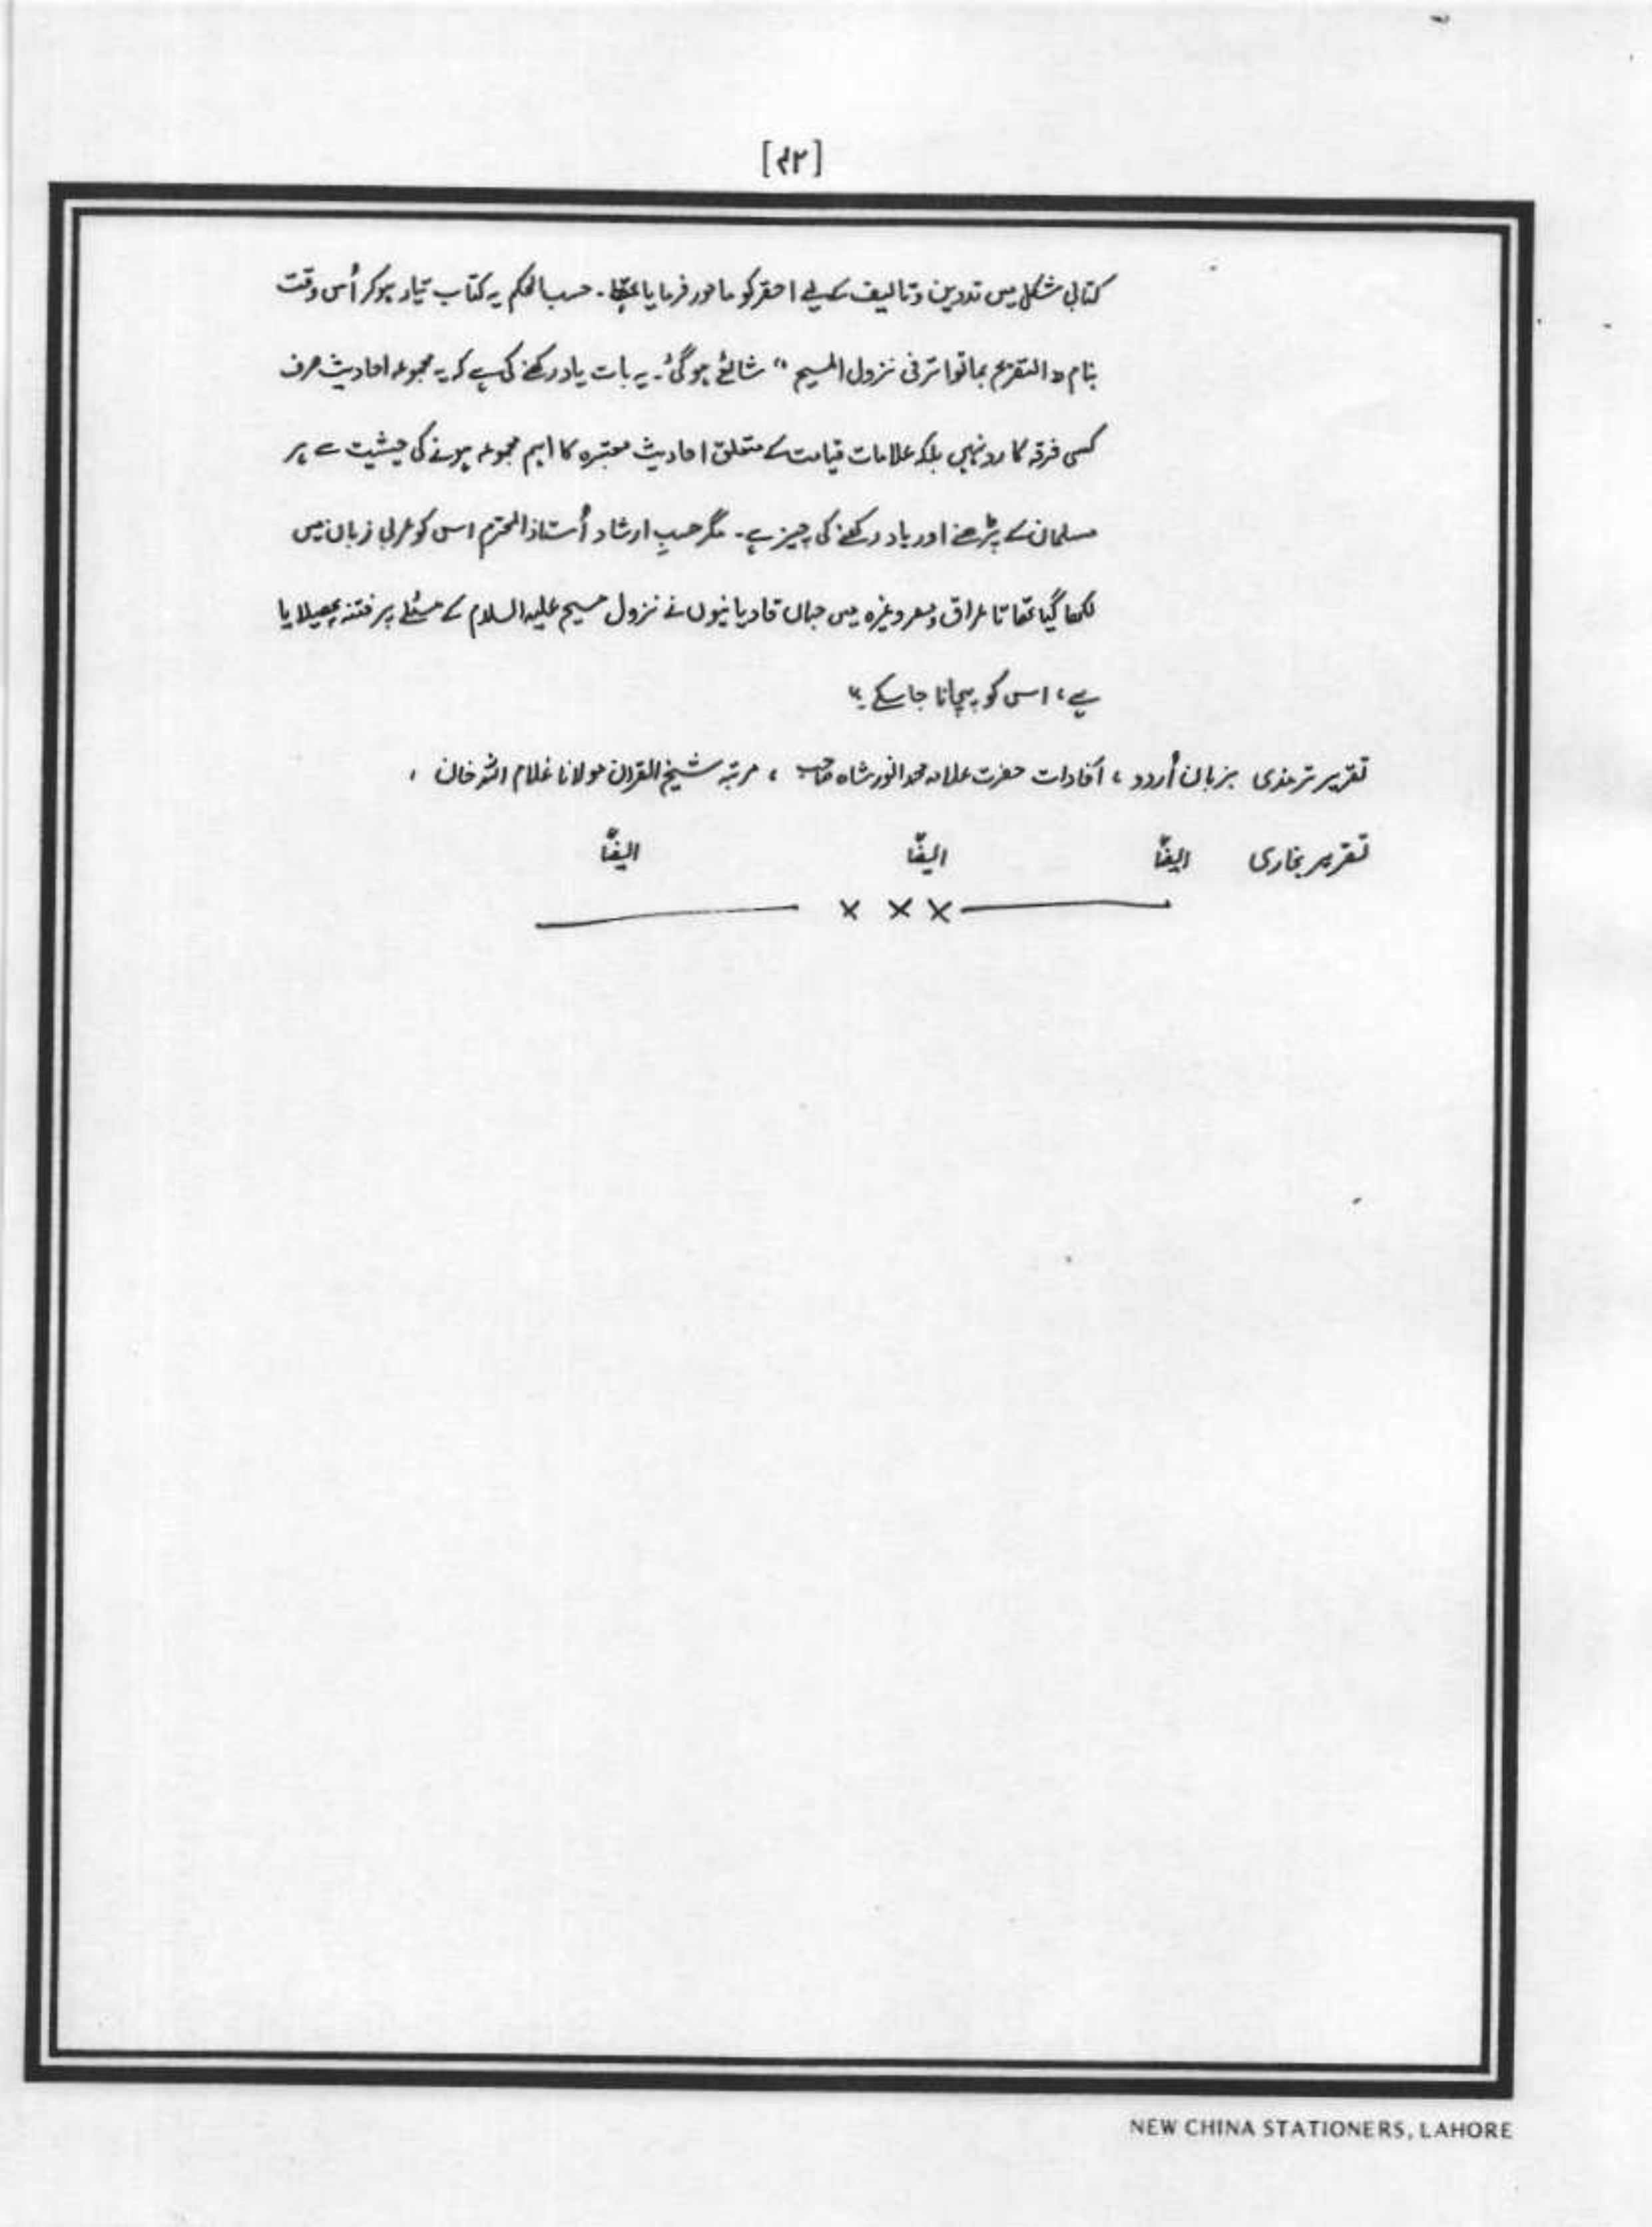 [۴۲]
کتابی شکل میں تدوین و تالیف کے لیے احقر کو مامور فرمایا تھا۔ حسب الحکم یہ کتاب تیار ہو کر اُس وقت
بنام "التصریح بما تواتر فی نزول المسیح" شائع ہو گئی۔ یہ بات یاد رکھنے کی ہے کہ یہ مجموعہ احادیث صرف
کسی فرقہ کا رد نہیں بلکہ علامات قیامت کے متعلق احادیث معتبرہ کا اہم مجموعہ ہونے کی حیثیت سے ہر
مسلمان کے پڑھنے اور یاد رکھنے کی چیز ہے۔ مگر حسبِ ارشاد اُستاذ المحترم اس کو عربی زبان میں
لکھا گیا تھا تا عراق و مصر وغیرہ میں جہاں قادیانیوں نے نزول مسیح علیہ السلام کے مسئلے پر فتنہ پھیلایا
ہے، اس کو پہچانا جا سکے۔"
تقریر ترمذی بزبان اُردو، افادات حضرت علامہ محمد انور شاہ صاحب، مرتبہ شیخ القران مولانا غلام اللہ خان،
تقریر بخاری ایضاً ایضاً ایضاً
× × ×
NEW CHINA STATIONERS, LAHORE